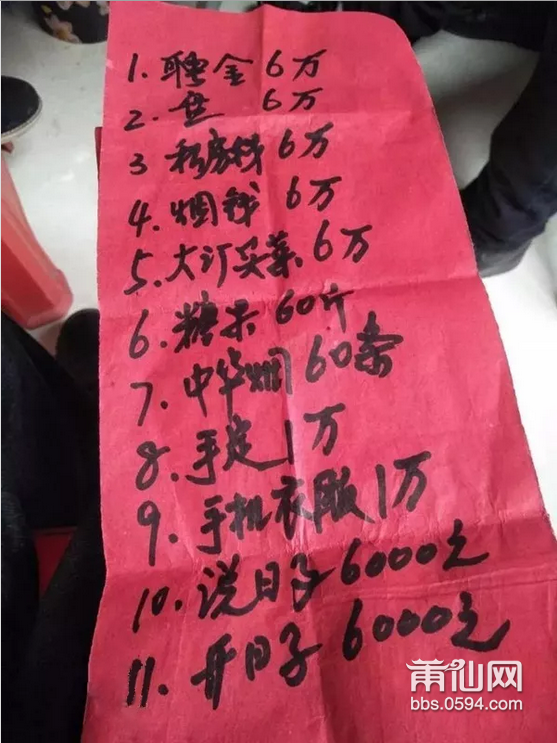 1. 聘金 6万
2. 盘 6万
3 私房钱 6万
4. 烟钱 6万
5. 大订买菜 6万
6. 糖果 60斤
7. 中华烟 60条
8. 手定 1万
9. 手机衣服 1万
10. 说日子 6000元
11. 开日子 6000元
莆仙网
bbs.0594.com